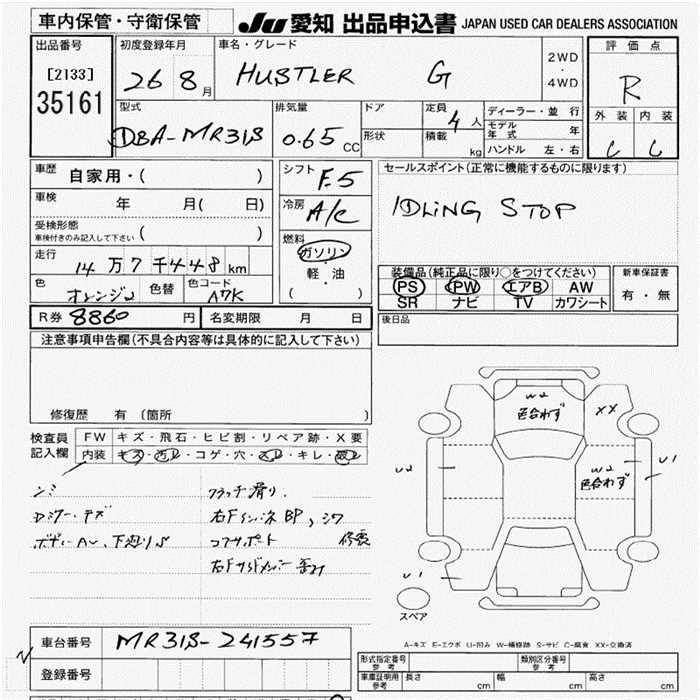 車内保管・守衛保管
JU 愛知 出品申込書 JAPAN USED CAR DEALERS ASSOCIATION
出品番号
[2133]
35161
初度登録年月
26 8月
車名・グレード
HUSTLER G
2WD
・
4WD
評価点
R
外装 内装
C C
型式
DBA-MR31S
排気量
0.65 CC
ドア
形状
定員 4人
積載 kg
ディーラー・並行
モデル年式 年
ハンドル 左・右
車歴 自家用・( )
車検 年 月( 日)
受検形態
車検付きのみ記入して下さい ( )
走行 14万7千448km
色 オレンジ2 色替 色コード A7K
シフト F.5
冷房 A/C
燃料
ガソリン
軽・油
( )
セールスポイント(正常に機能するものに限ります)
IDLING STOP
装備品(純正品に限り○をつけてください)
PS PW エアB AW
SR ナビ TV カワシート
新車保証書
有・無
R券 8860円 名変期限 月 日
後日品
注意事項申告欄(不具合内容等は具体的に記入して下さい)
修復歴 有(箇所 )
検査員記入欄
FW キズ・飛石・ヒビ割・リペア跡・X要
内装 キズ・汚レ・コゲ・穴・スレ・キレ・破レ
シミ クラッチ滑り.
ボデーAU、下廻りS 右Fインネ BP、シワ
コアサポート 修復
W2
色合わず
XX
U2
W2
色合わず
U1
U1
スペア
A-キズ E-エクボ U-凹み W-補修跡 S-サビ C-腐食 XX-交換済
車台番号 MR31S-241557
登録番号
形式指定番号 参考 類別区分番号 参考
車庫証明用 参考 長さ cm 幅 cm 高さ cm